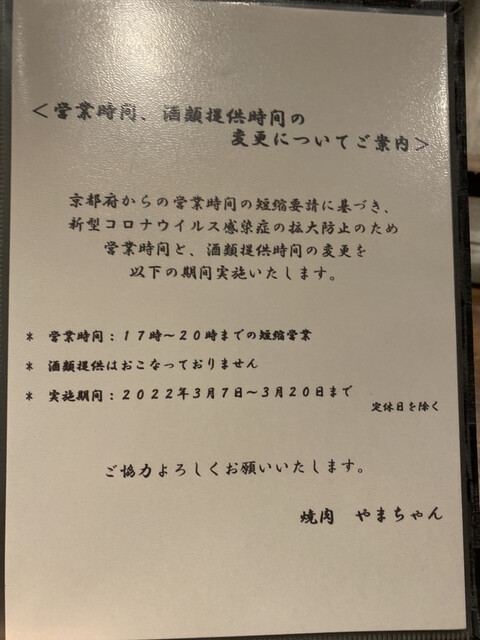 ＜営業時間、酒類提供時間の
変更についてご案内＞
京都府からの営業時間の短縮要請に基づき、
新型コロナウイルス感染症の拡大防止のため
営業時間と、酒類提供時間の変更を
以下の期間実施いたします。
＊ 営業時間：１７時～２０時までの短縮営業
＊ 酒類提供はおこなっておりません
＊ 実施期間：２０２２年３月７日～３月２０日まで
定休日を除く
ご協力よろしくお願いいたします。
焼肉　やまちゃん